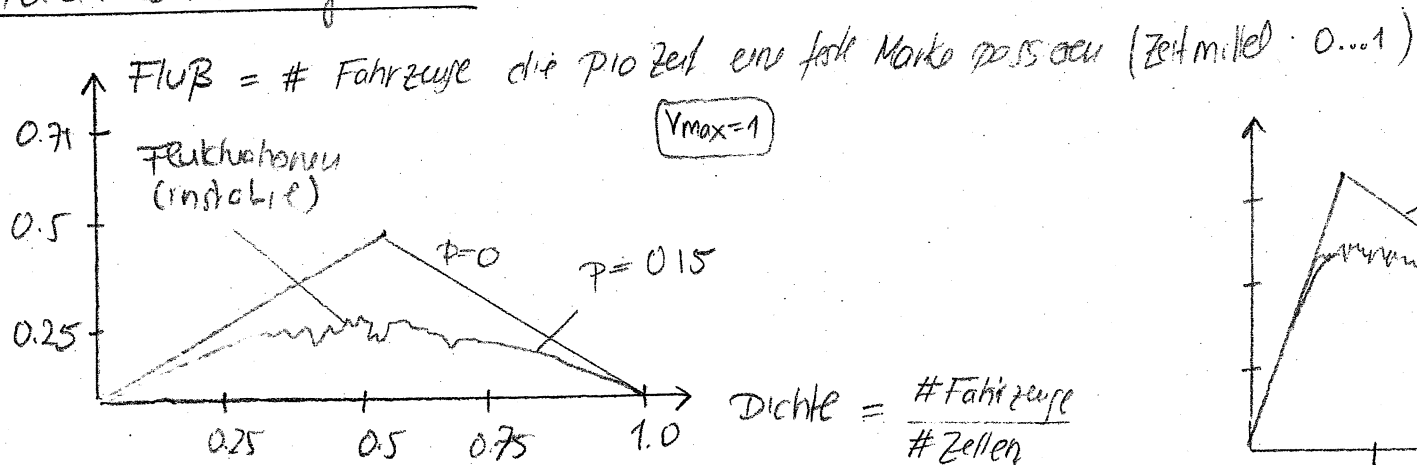 Fluß = # Fahrzeuge die pro Zeit eine feste Marke passieren (Zeitmittel · 0...1)
Vmax=1
0.71
Fluktuationen
(instabil)
0.5
p=0
p=015
0.25
0.25 0.5 0.75 1.0
Dichte = #Fahrzeuge
#Zellen